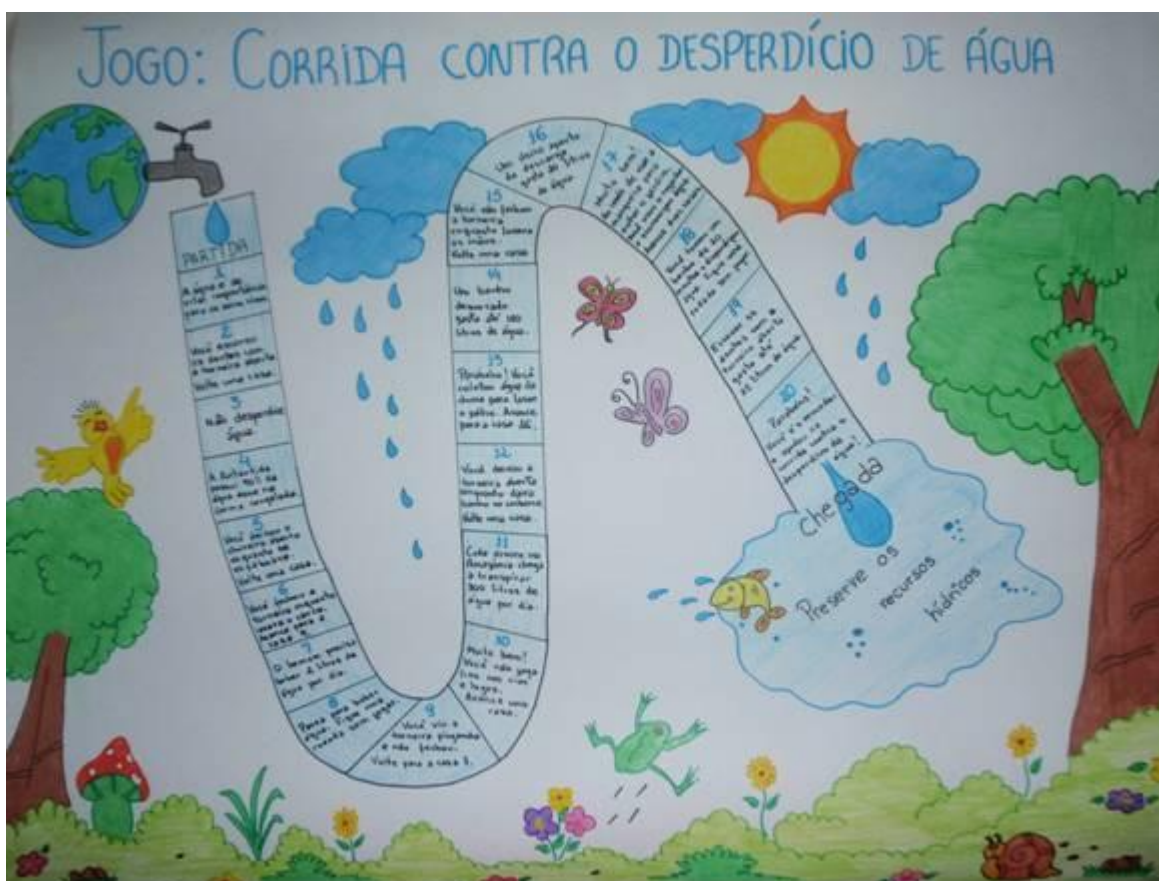 JOGO: CORRIDA CONTRA O DESPERDÍCIO DE ÁGUA
PARTIDA
1
A água é de
vital importância
para os seres vivos.
2
Você escovou
os dentes com
a torneira aberta
Volte uma casa.
3
Não desperdice
água.
4
A Antártida
possui 90% da
água doce na
forma congelada.
5
Você deixou o
chuveiro aberto
enquanto se
ensaboava.
Volte uma casa.
6
Você fechou a
torneira enquanto
Avance para a
casa 9.
7
O homem precisa
beber 2 litros de
água por dia.
8
Pausa para beber
água. Fique uma
rodada sem jogar.
9
Você viu a
torneira pingando
e não fechou.
Volte para a casa
10
Muito bem!
Você não joga
lixo nos rios
e lagos.
Avance uma
casa.
11
Cada árvore na
Amazônia chega
a transpirar
300 litros de
água por dia.
12
Você deixou a
torneira aberta
enquanto
Volte uma casa.
13
Parabéns! Você
coletou água da
chuva para lavar
o pátio. Avance
para a casa
14
Um banho
demorado
gasta até 180
litros de água.
15
Você não fechou
a torneira
enquanto lavava
as mãos.
Volte uma casa
16
Um único aperto
da descarga
gasta
litros
de água.
17
Muito bem!
18
Você tomou um
banho de
minutos e desperdiçou
água. Fique uma
rodada sem jogar.
19
Escovar os
dentes com a
torneira aberta
gasta até
25 litros de água.
20
Parabéns!
Você é o vencedor
e ajudou na
corrida contra o
desperdício de
água!
chegada
Preserve os
recursos
hídricos